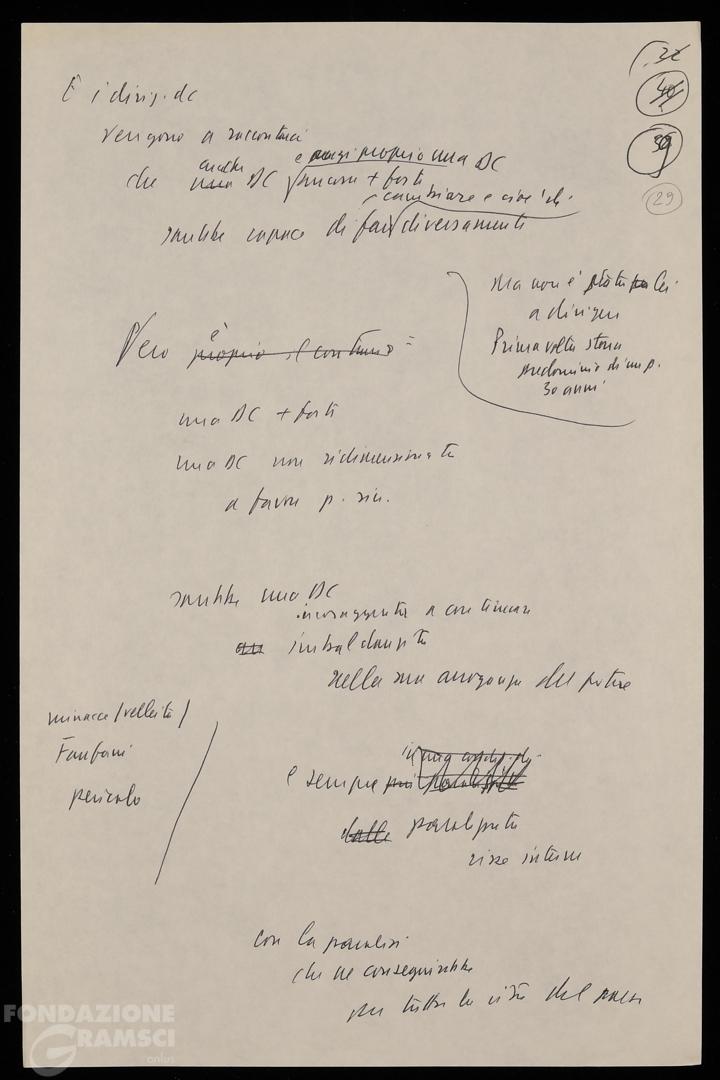 32
40
39
29
E i dirig. dc
vengono a raccontarci
anche e magari proprio una DC
che una DC ancora + forte
cambiare e cioè di
sarebbe capace di far diversamente
ma non è stata lei
a dirigere
Prima volta storia
predominio di un p.
30 anni
Vero è proprio il contrario =
una DC + forte
una DC non ridimensionata
a favore p. sin.
sarebbe una DC
incoraggiata a continuare
imbaldanzita
nella sua arroganza del potere
minacce / velleità /
Fanfani
pericolo
e sempre più
dalle paralizzata
risse interne
con la paralisi
che ne conseguirebbe
per tutta la vita del paese
FONDAZIONE
GRAMSCI
onlus